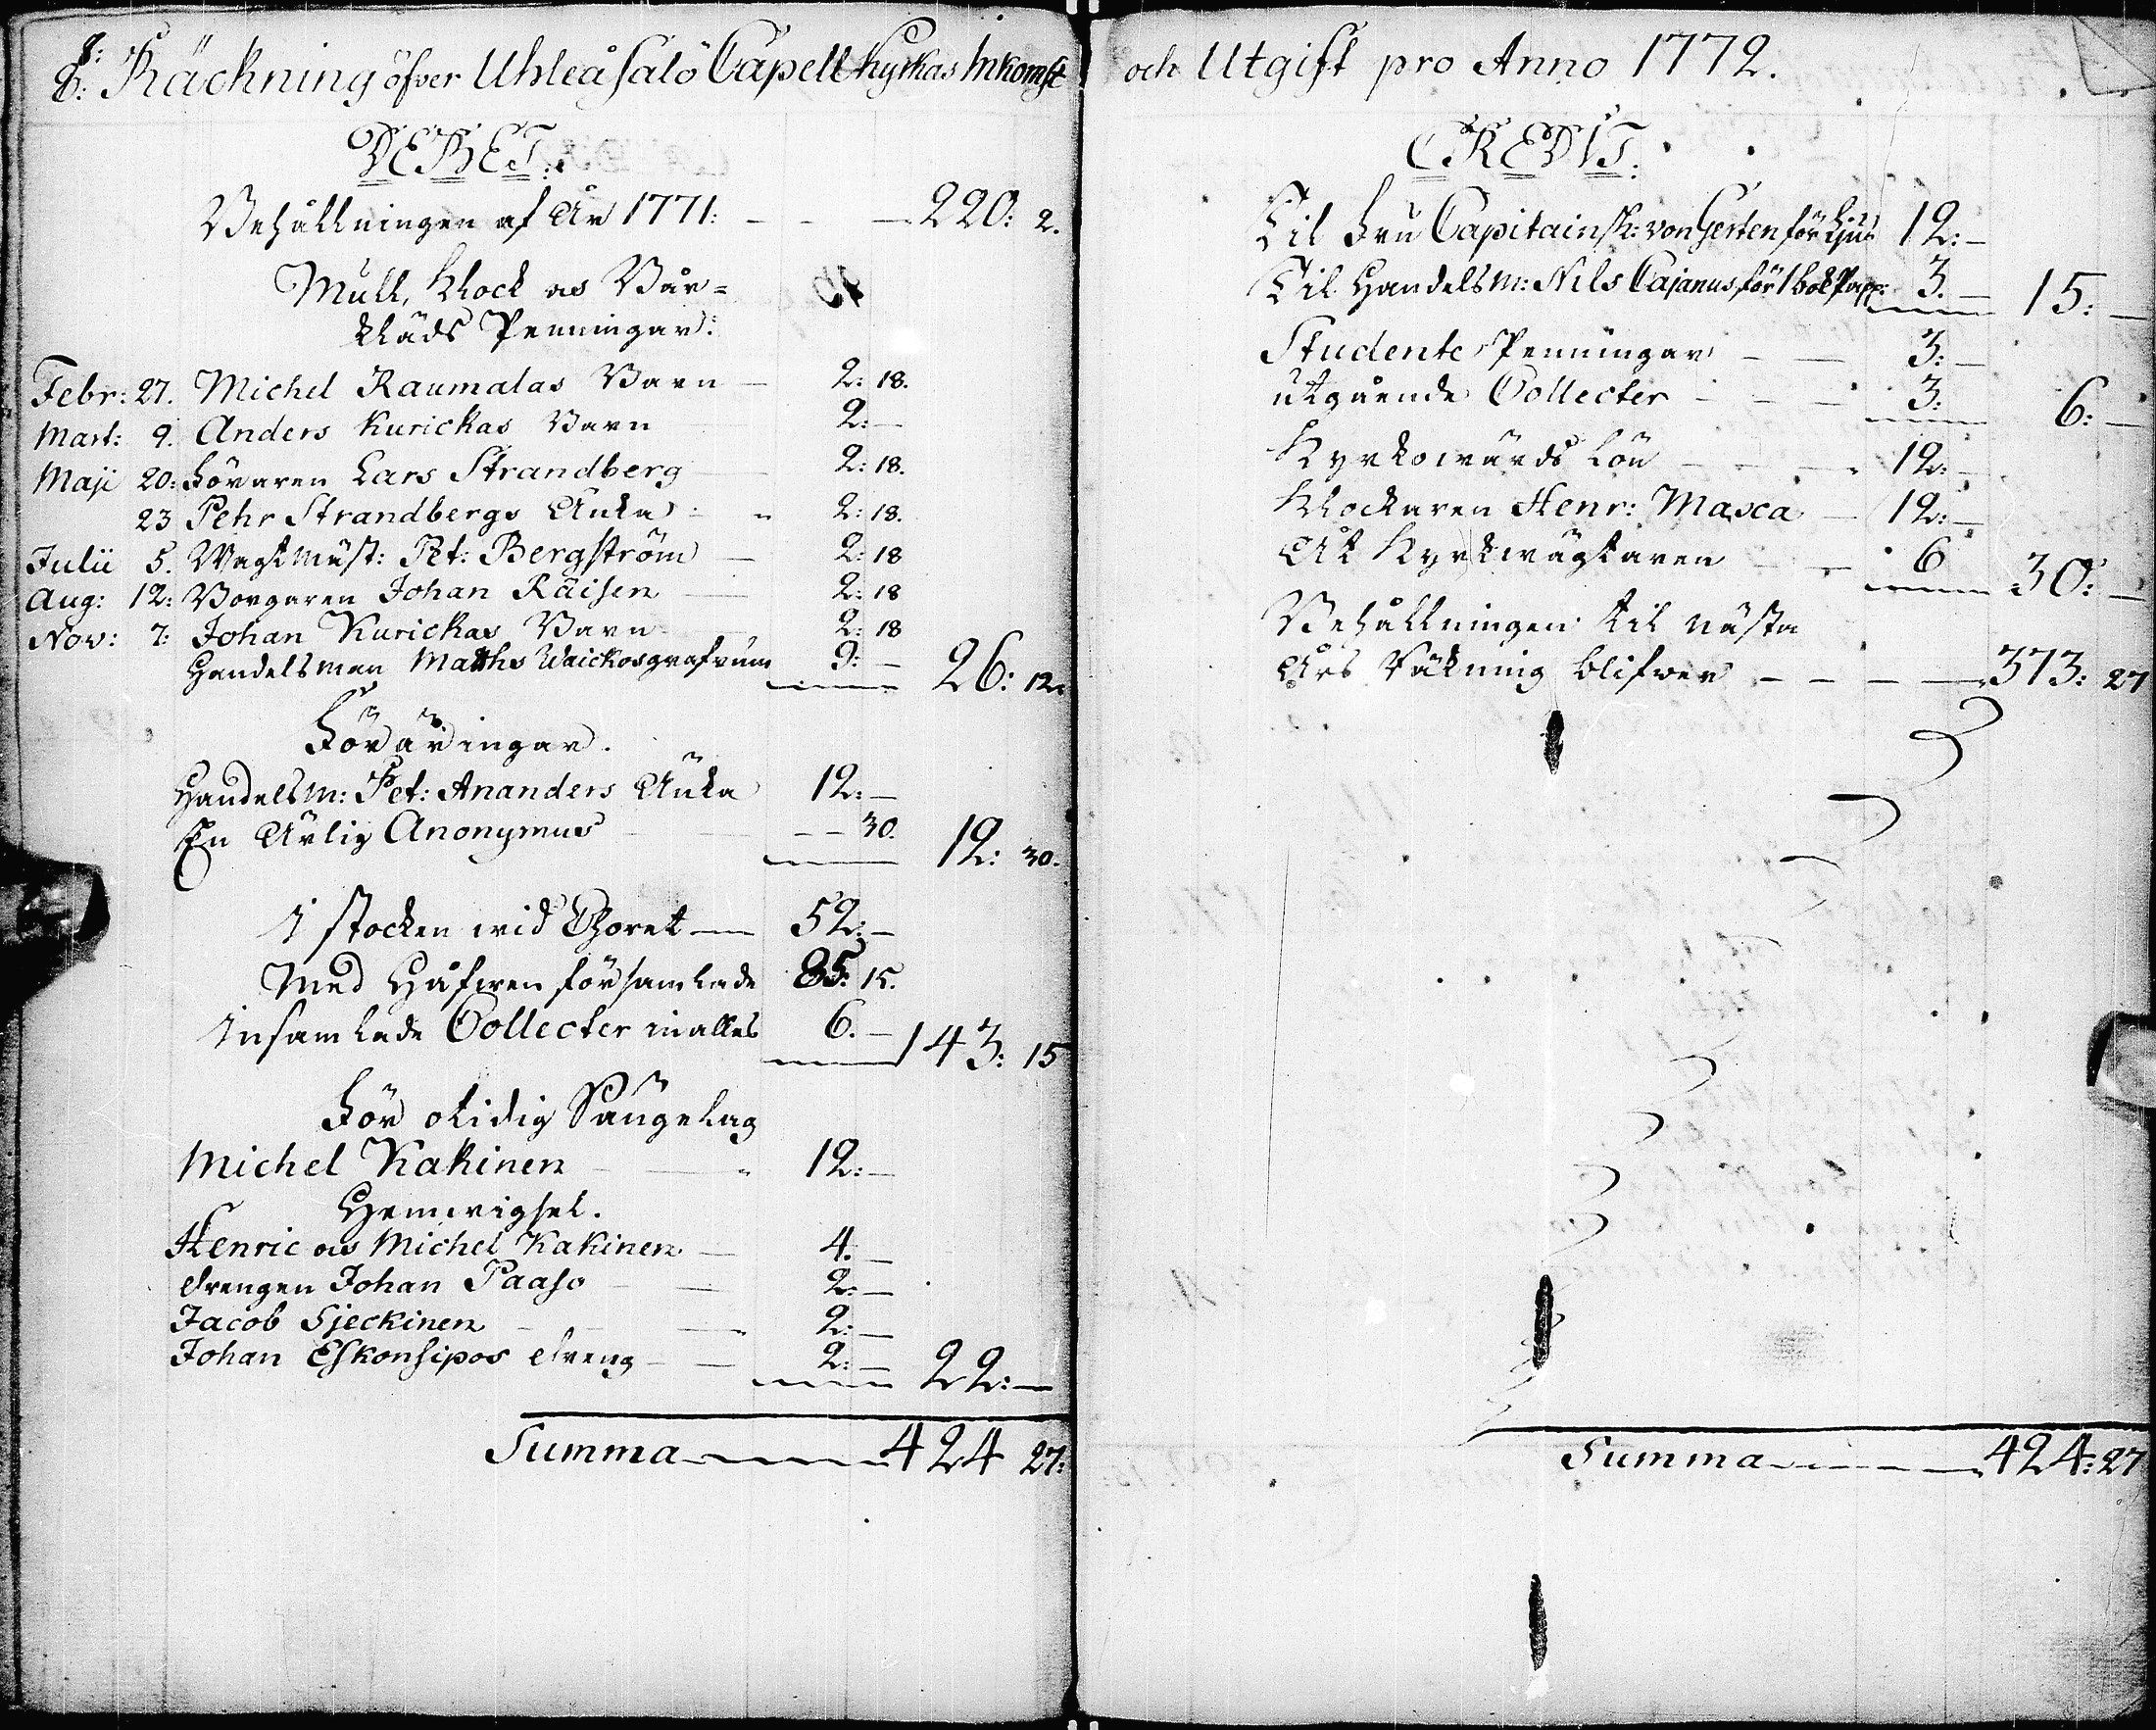 8:
8: Räckning öfver Uhleåsalö Capell Kyrkas Inkomst
DEBET:
Behållningen af År 1771: — — — 220: 2.
Mull, Klock os Bår=
kläds Penningar:
Febr: 27. Michel Raumalas Barn — 2: 18.
Mart: 9. Anders Kurickas Barn 2: —
Maji 20: Föraren Lars Strandberg — 2: 18.
23 Pehr Strandbergs Enka 2: 18.
Julii 5. Wagtmäst: Pet: Bergström — 2: 18
Aug: 12: Borgaren Johan Räisen — 2: 18
Nov: 7: Johan Kurickas Barn 2: 18
Handelsman Matths Waickos grafrum 9: — 26: 12.
Föräringar.
Handelsm: Pet: Ananders Enka 12: —
En Ärlig Anonymus — — 30. 12: 30.
I stocken wid Choret — 52: —
Med Håfwen församlade 85: 15.
Insamlade Collecter in alles 6. — 143: 15
För otidig Sängelag
Michel Kakinen — 12: —
Hemwigsel.
Henric os Michel Kakinen — 4. —
drengen Johan Paaso — 2: —
Jacob Sjeckinen — 2: —
Johan Eskonsipos dreng — — 2: — 22: —
Summa — 424 27:
och Utgift pro Anno 1772.
CREDIT:
Til Fru Capitainsk: von Gerten för Ljus 12: —
Til Handelsm: Nils Cajanus, för 1 bok Papp: 3. — 15: —
Studente Penningar — — 3: —
utgående Collecter — — — 3: 6: —
Kyrkowärds Lön — — — 12: —
Klockaren Henr: Masca — 12: —
Åt Kyrkwägtaren — — 6 30: —
Behållningen til nästa
Års Räkning blifwer — — — — 373: 27
Summa — 424: 27